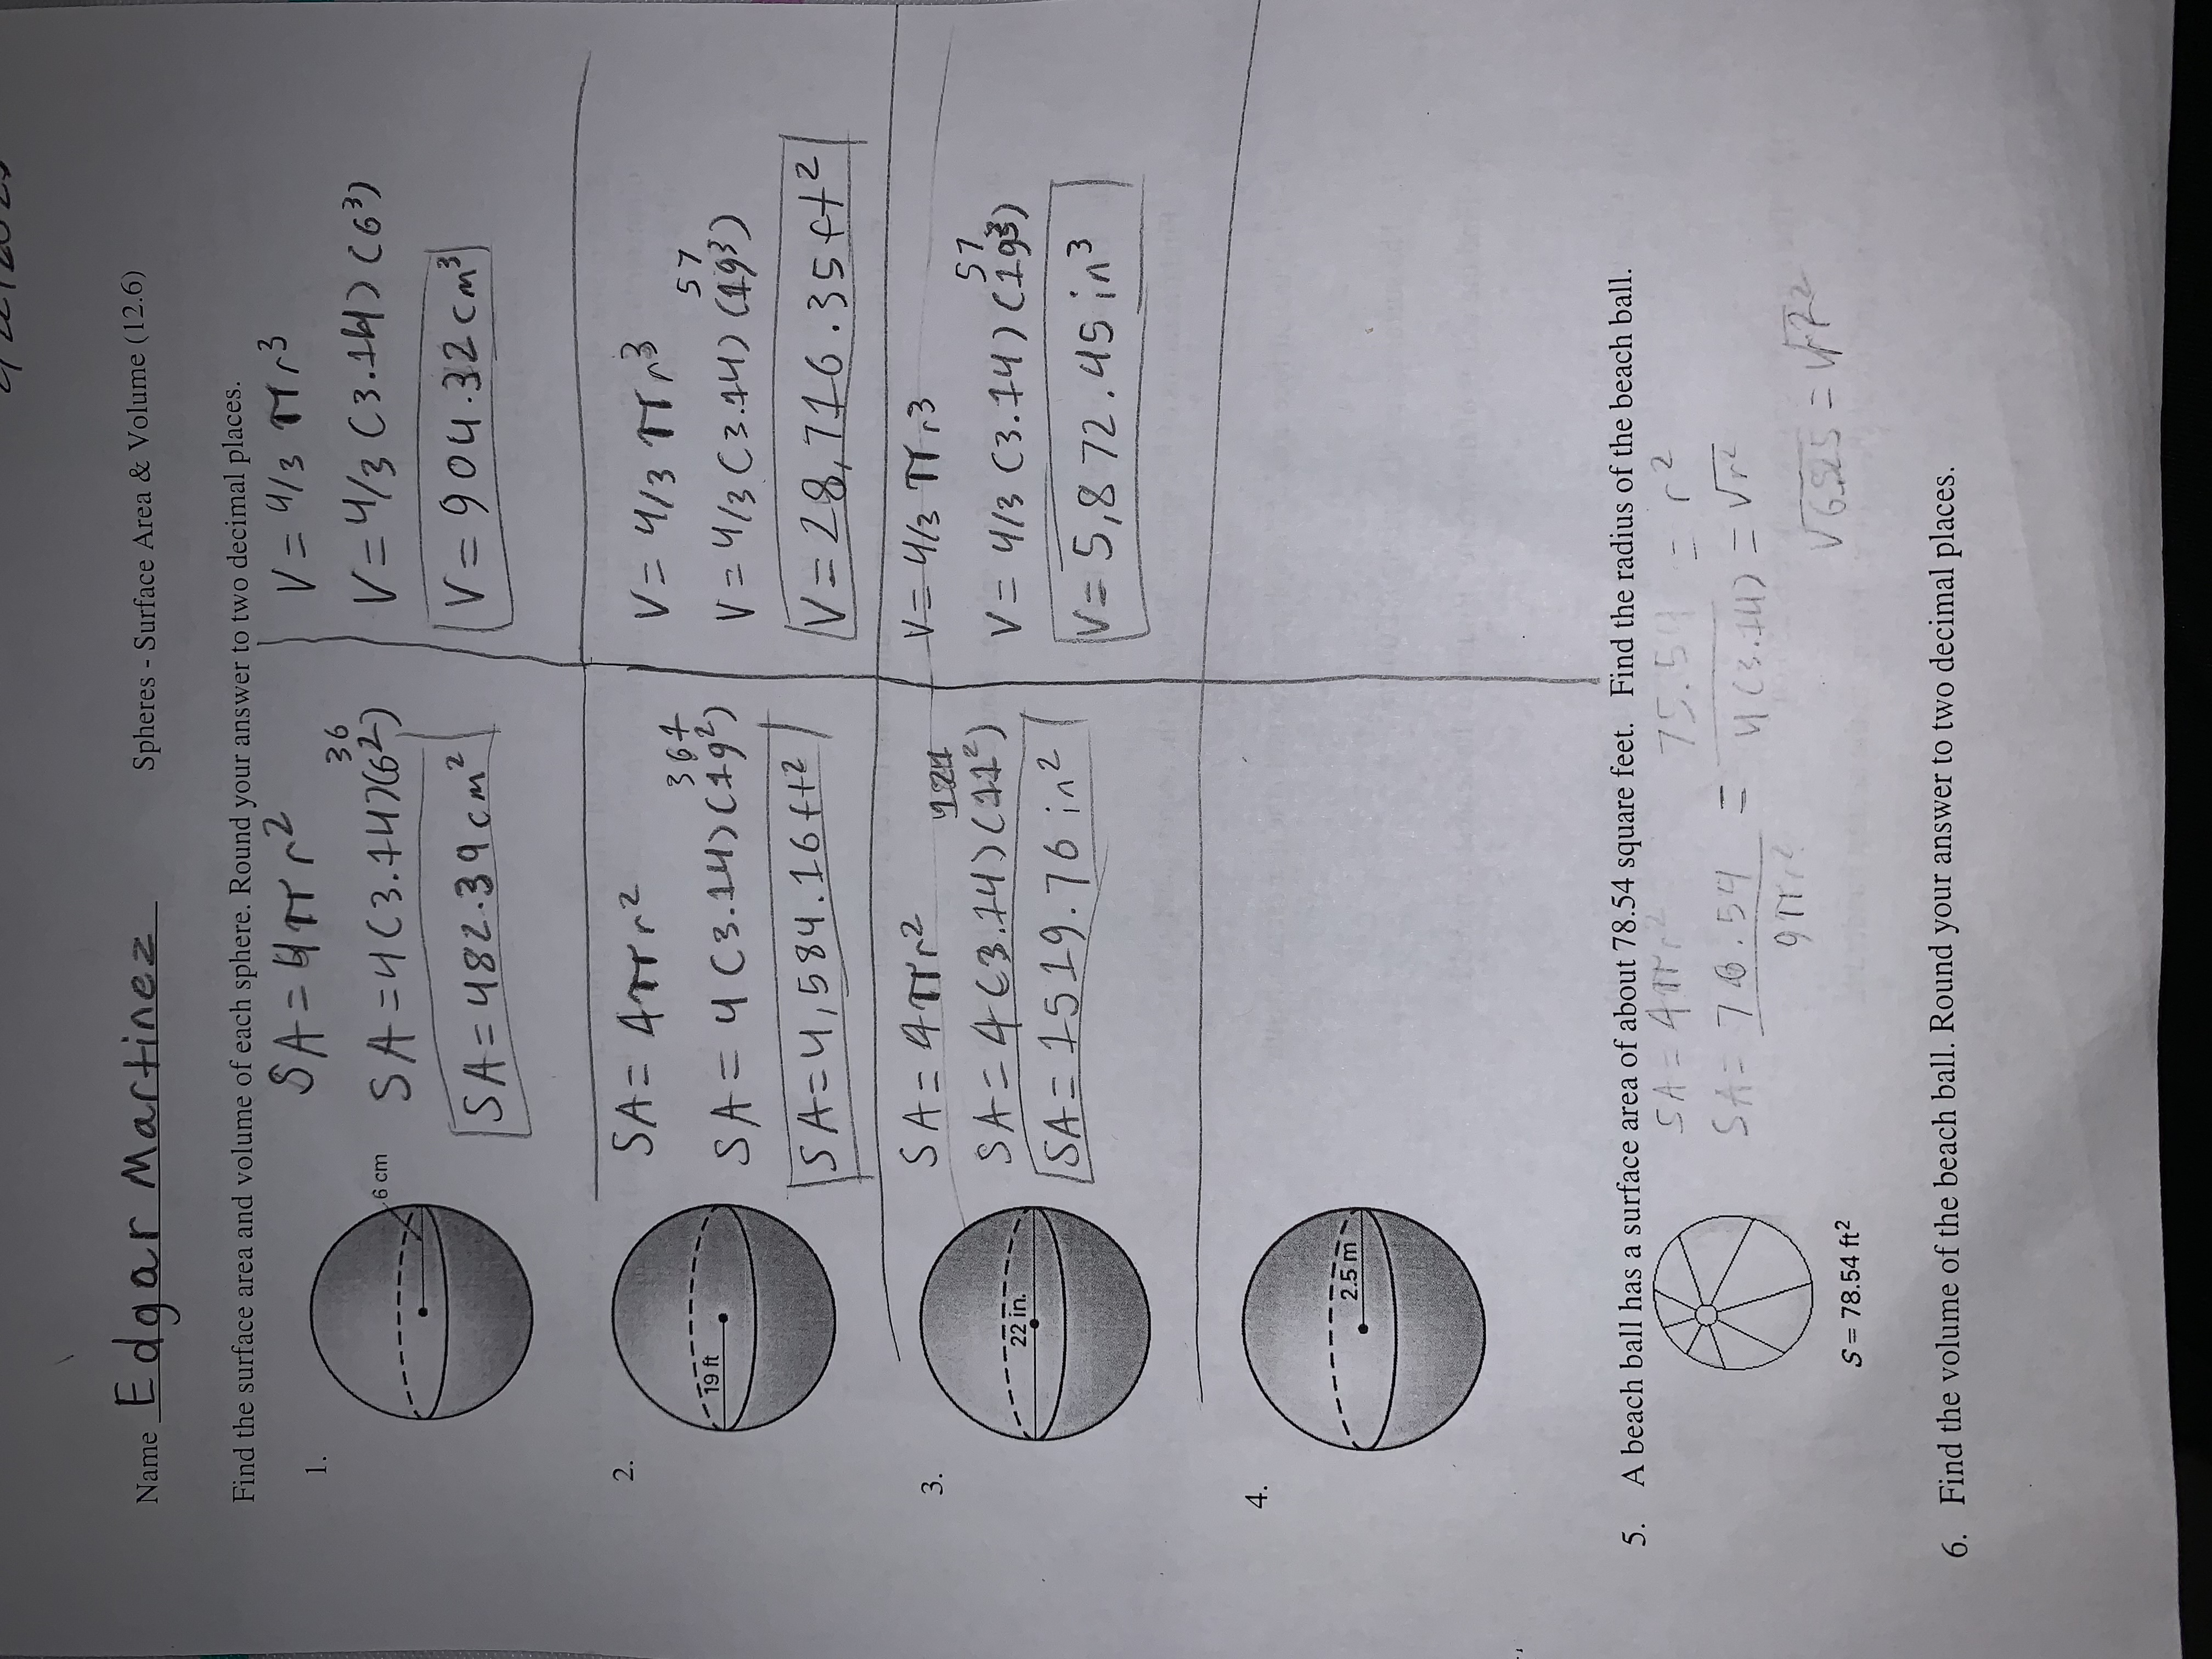 Name Edgar Martinez Spheres - Surface Area & Volume (12.6)
Find the surface area and volume of each sphere. Round your answer to two decimal places.
1.
6 cm
SA = 4πr²
36
SA = 4(3.14)(6²)
SA = 482.39cm²
V = 4/3 πr³
V = 4/3 (3.14)(6³)
V = 904.32cm³
2.
19 ft
SA = 4πr²
361
SA = 4(3.14)(19²)
SA = 4,584.16ft²
V = 4/3 πr³
57
V = 4/3 (3.14)(19³)
V = 28,716.35ft²
3.
22 in.
SA = 4πr²
SA = 4(3.14)(11²)
SA = 1519.76in²
V = 4/3 πr³
57
V = 4/3 (3.14)(19³)
V = 5,872.45in³
4.
2.5 m
5. A beach ball has a surface area of about 78.54 square feet. Find the radius of the beach ball.
SA = 4πr²
75.54 = r²
SA = 76.54 =
4(3.14) = √r²
9πr²
= √r²
S = 78.54 ft²
6. Find the volume of the beach ball. Round your answer to two decimal places.